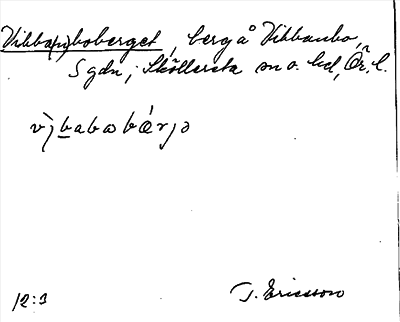 Vibba(n)boberget, berg å Vibbanbo,
S gdn; Sköllersta sn o. hd, Ör. l.
vibababärjə
12:3
T. Ericsson